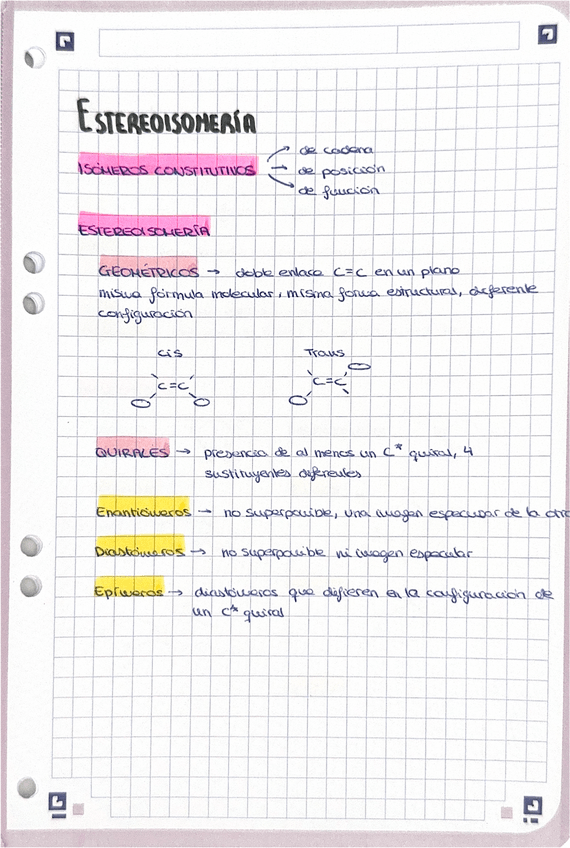 ESTEREOISOMERÍA
ISÓMEROS CONSTITUTIVOS
→ de cadena
→ de posición
→ de función
ESTEREOISOMERÍA
GEOMÉTRICOS → doble enlace C=C en un plano
misma fórmula molecular, misma forma estructural, diferente
configuración
cis
Trans
C=C
C=C
QUIRALES → presencia de al menos un C* quiral, 4
sustituyentes diferentes
Enantiómeros → no superponible, una imagen especular de la otra
Diastómeros → no superponible ni imagen especular
Epímeros → diastómeros que difieren en la configuración de
un C* quiral